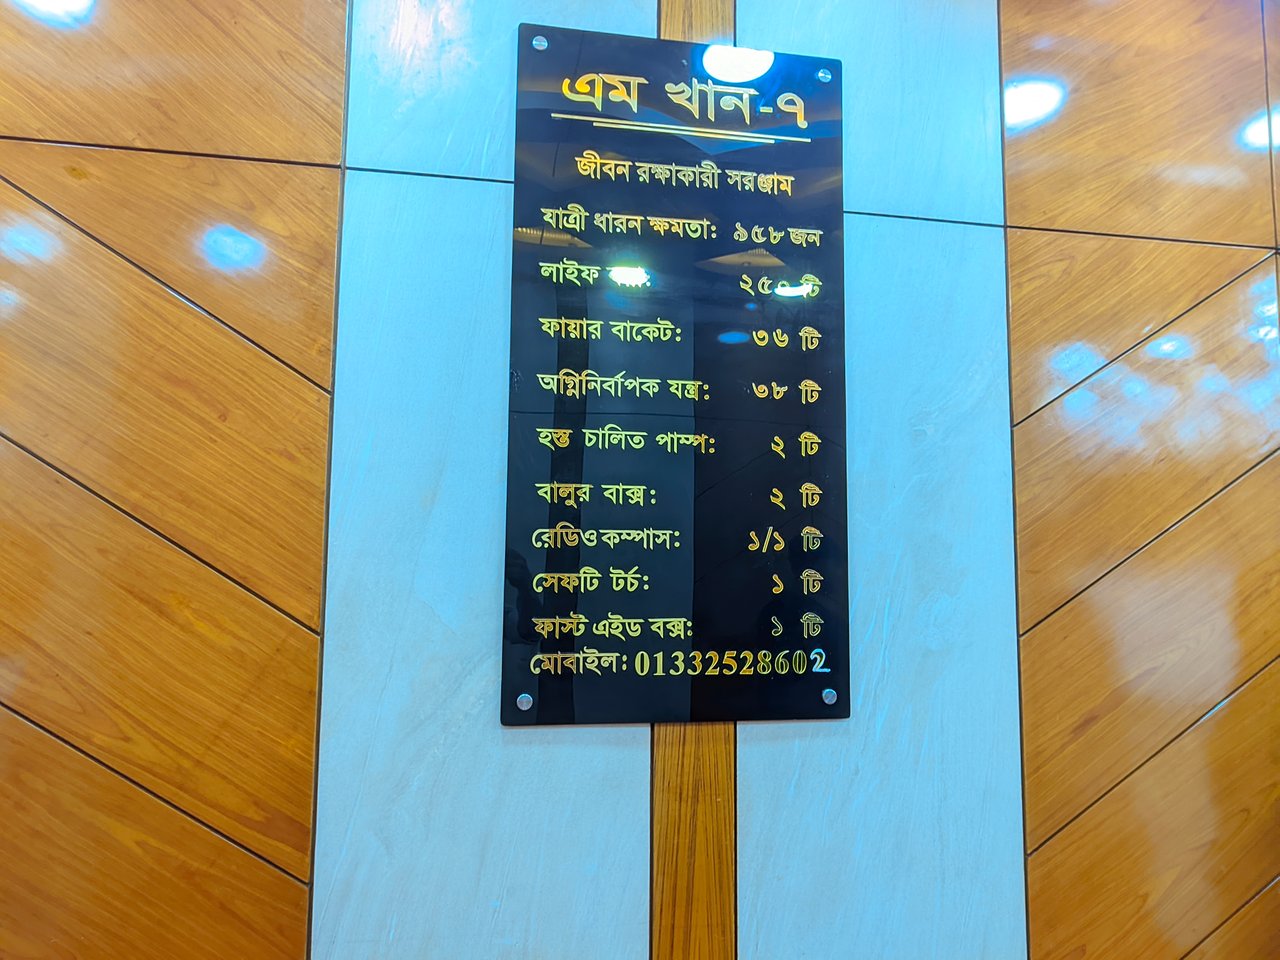 এম খান-৭
জীবন রক্ষাকারী সরঞ্জাম
যাত্রী ধারন ক্ষমতা: ৯৫৮ জন
লাইফ ২৫০ টি
ফায়ার বাকেট: ৩৬ টি
অগ্নিনির্বাপক যন্ত্র: ৩৮ টি
হস্ত চালিত পাম্প: ২ টি
বালুর বাক্স: ২ টি
রেডিও কম্পাস: ১/১ টি
সেফটি টর্চ: ১ টি
ফাস্ট এইড বক্স: ১ টি
মোবাইল: 01332528602